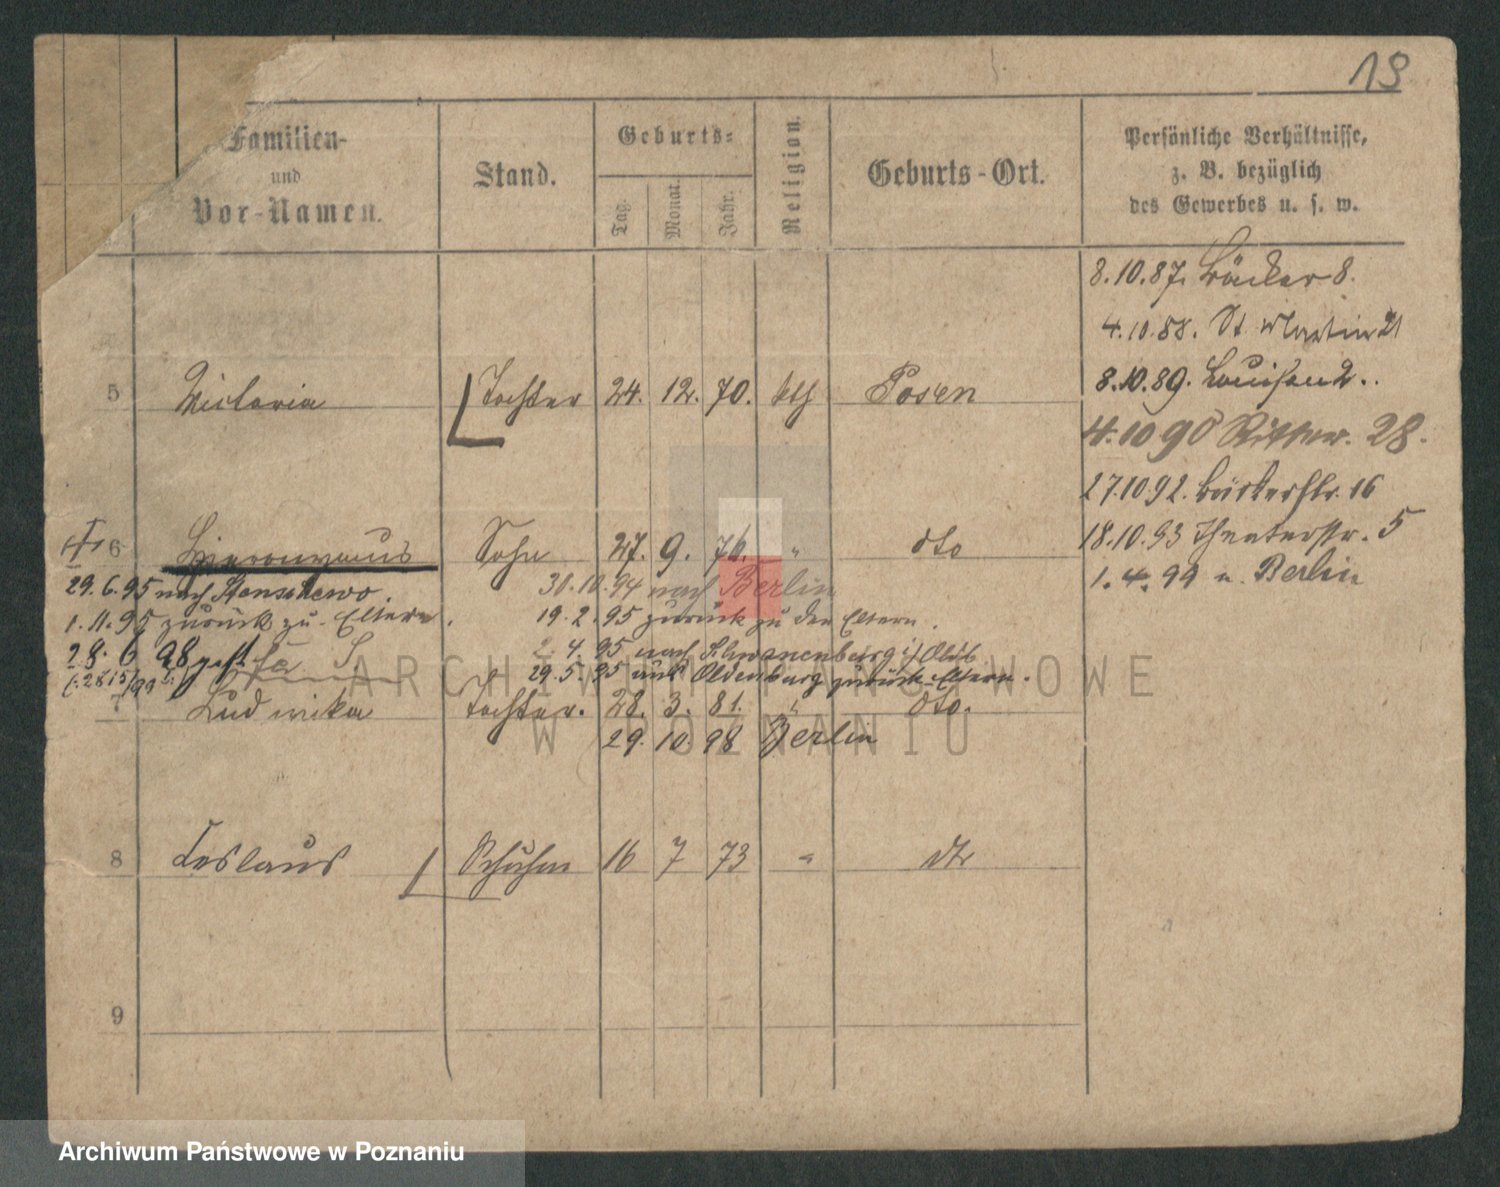 19
Familien-
und
Vor-Namen.
Stand.
Geburts-
Tag.
Monat.
Jahr.
Religion.
Geburts-Ort.
Persönliche Verhältnisse,
z. B. bezüglich
des Gewerbes u. s. w.
8.10.87. Bäcker 8.
4.10.88. St. Martin 21
8.10.89. Louisen 2..
4.10 90 Ritter. 28.
27.10.92. Bäckerstr. 16
18.10.93 Theaterstr. 5
1. 4. 99 n. Berlin
5 Victoria Tochter 24. 12. 70. kth Posen
6 Hieronymus Sohn 27. 9. 76. " dto
30.10.94 nach Berlin
29.6.95 nach Stenschewo.
19.2.95 zurück zu den Eltern.
1.11.95 zurück zu Eltern.
2.4.95 nach Schwanenburg i/Oldb
28.6 98
29.5.95 aus Oldenburg zurück Eltern.
7 Ludwika Tochter. 28. 3. 81. " dto.
29. 10. 98 Berlin
8 Ceslaus Schuhm 16 7 73 " dto
9
ARCHIWUM PAŃSTWOWE
W POZNANIU
Archiwum Państwowe w Poznaniu